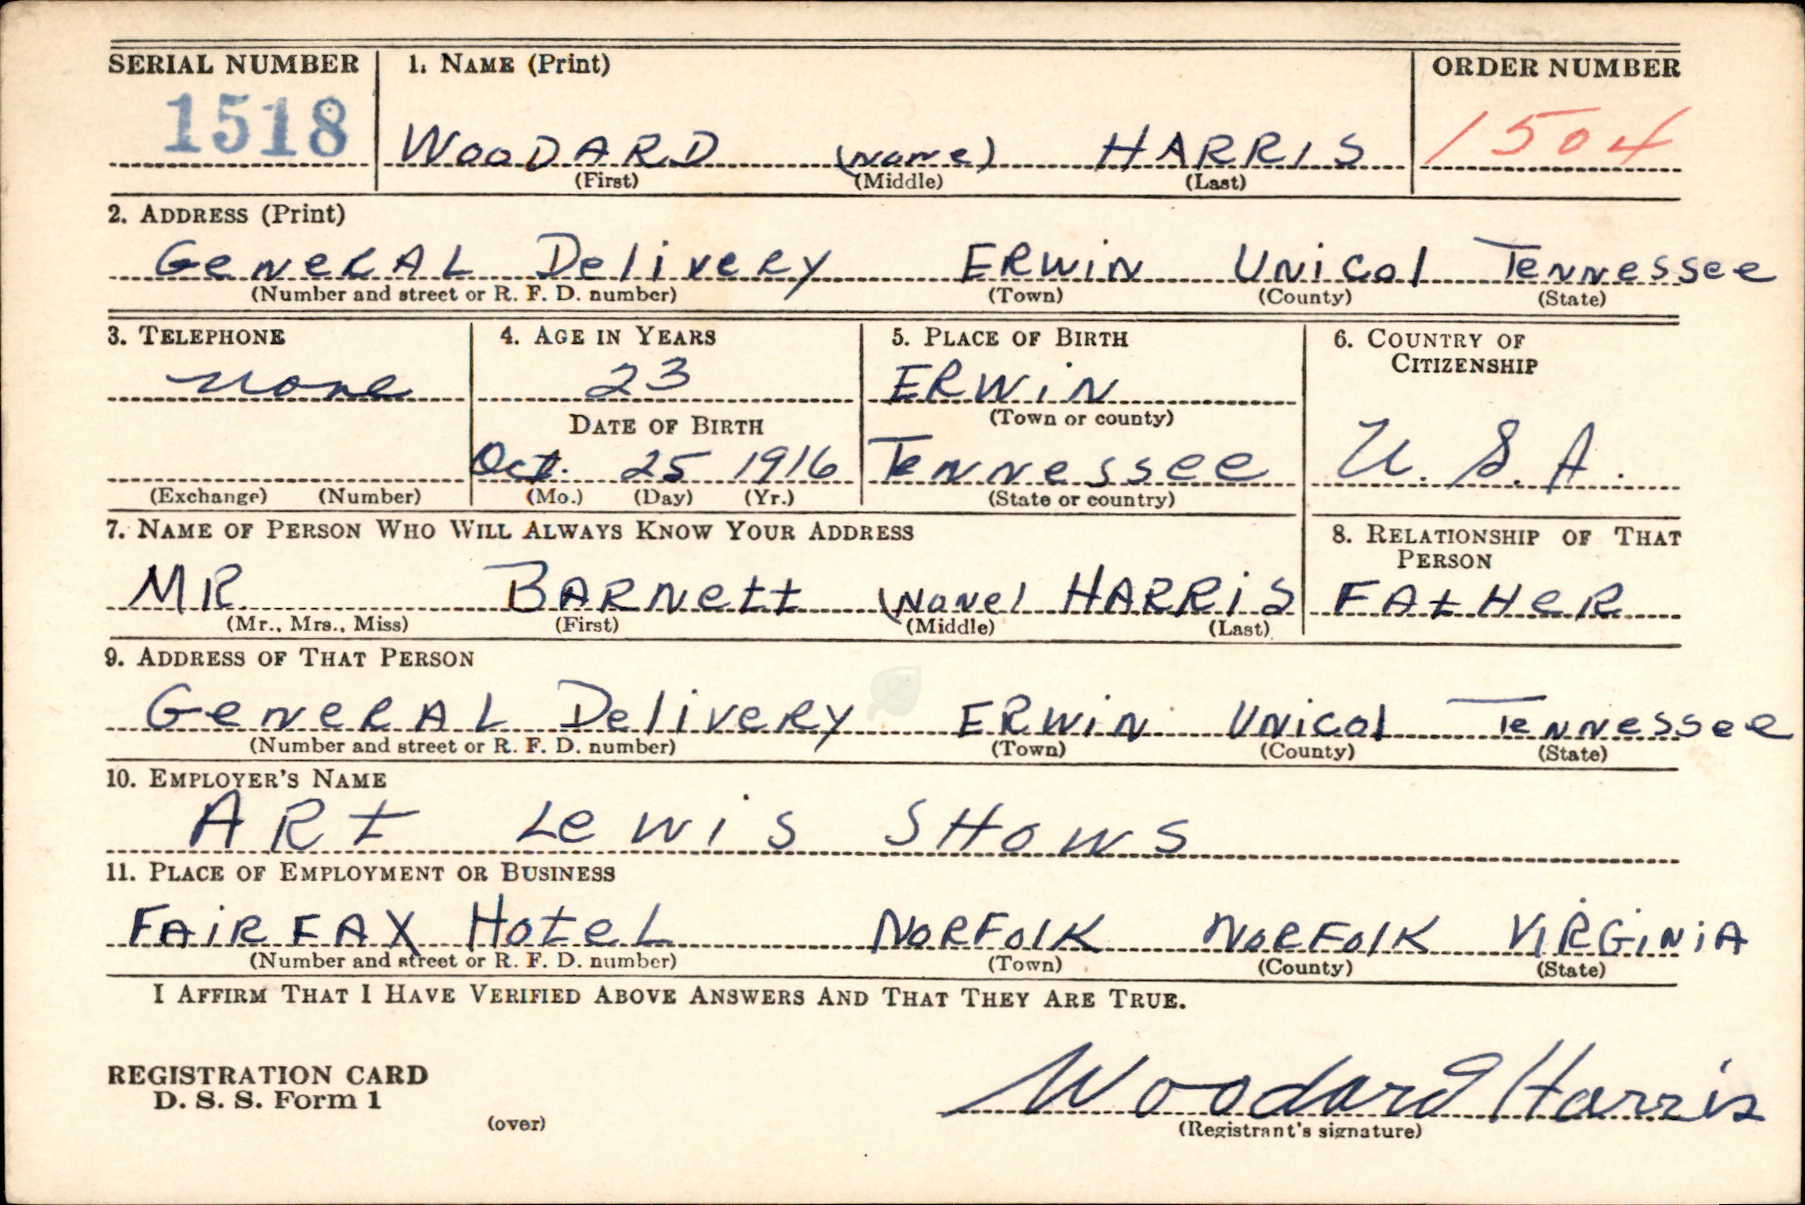 SERIAL NUMBER 1. NAME (Print) ORDER NUMBER
1518 WOODARD (none) HARRIS 1504
(First) (Middle) (Last)
2. ADDRESS (Print)
General Delivery ERwin Unicol Tennessee
(Number and street or R. F. D. number) (Town) (County) (State)
3. TELEPHONE 4. AGE IN YEARS 5. PLACE OF BIRTH 6. COUNTRY OF CITIZENSHIP
none 23 ERWiN
DATE OF BIRTH (Town or county)
Oct. 25 1916 Tennessee U. S. A.
(Exchange) (Number) (Mo.) (Day) (Yr.) (State or country)
7. NAME OF PERSON WHO WILL ALWAYS KNOW YOUR ADDRESS 8. RELATIONSHIP OF THAT PERSON
MR BARNett (None) HARRiS FAtHeR
(Mr., Mrs., Miss) (First) (Middle) (Last)
9. ADDRESS OF THAT PERSON
General Delivery ERwin Unicol Tennessee
(Number and street or R. F. D. number) (Town) (County) (State)
10. EMPLOYER'S NAME
ARt Lewis SHows
11. PLACE OF EMPLOYMENT OR BUSINESS
FAiRFAX Hotel NoRFolK NoRFolK ViRGiNiA
(Number and street or R. F. D. number) (Town) (County) (State)
I AFFIRM THAT I HAVE VERIFIED ABOVE ANSWERS AND THAT THEY ARE TRUE.
REGISTRATION CARD
D. S. S. Form 1 Woodard Harris
(over) (Registrant's signature)